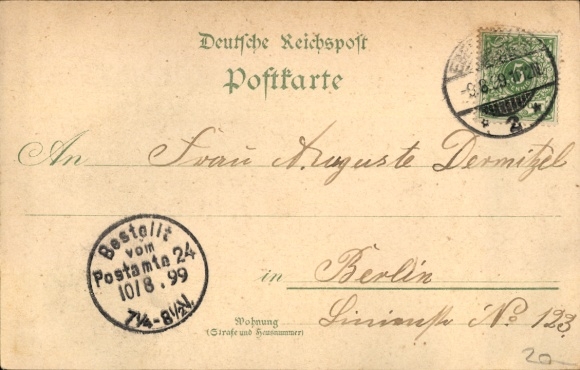 Deutsche Reichspost
Postkarte
5
-9.8.99.
* 2 *
An Frau Auguste Dermitzel
Bestellt
vom
Postamte 24
10/8.99
7¼-8½N.
in Berlin
Wohnung
(Straße und Hausnummer)
Linienstr No 123
20